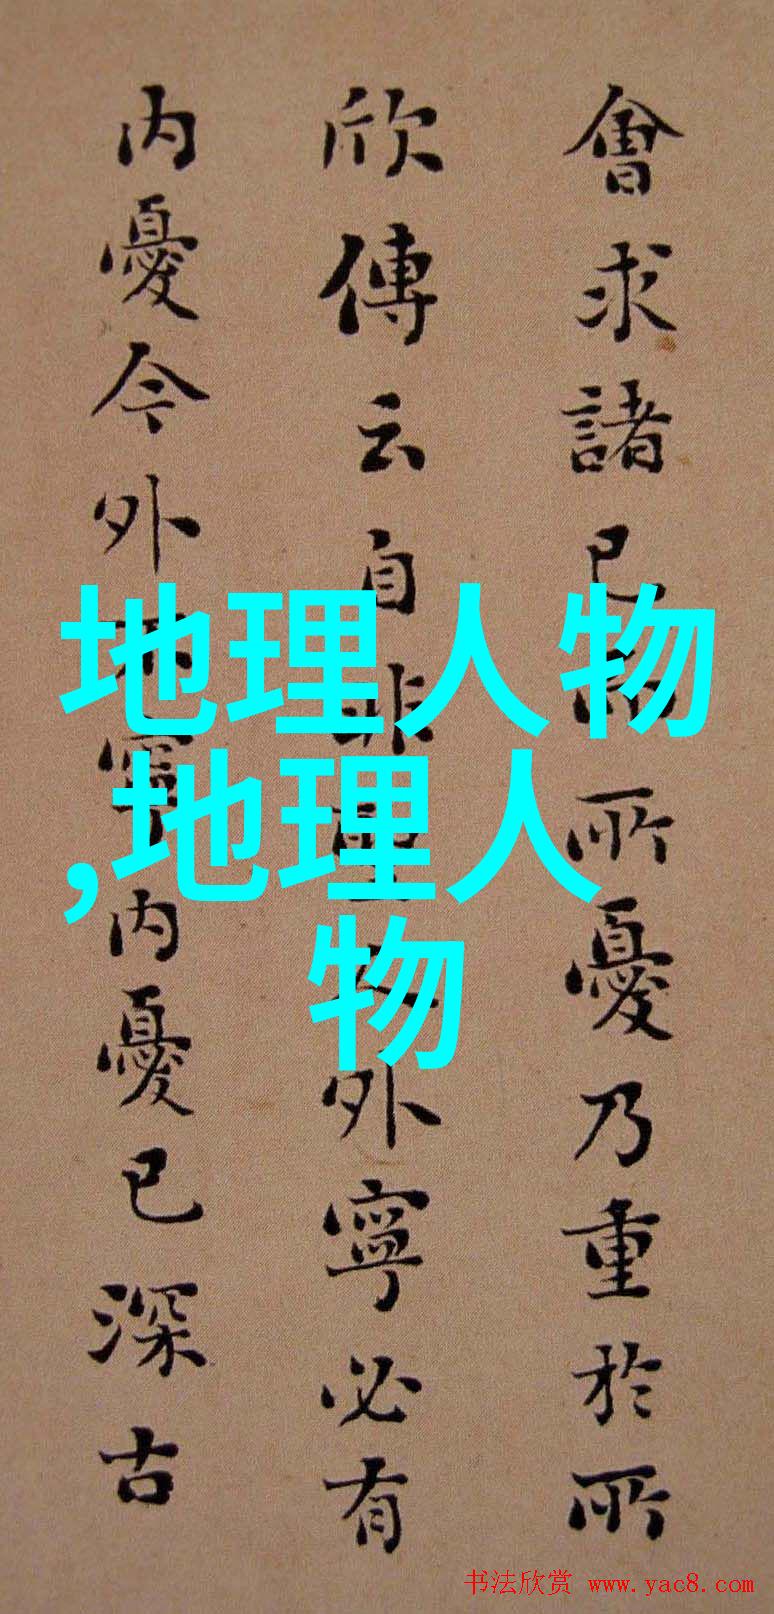 會求諸己所憂乃重於所
欣傳云自非外寧必有
内憂今外寧内憂已深古
地理人物
,地理人
物
书法欣赏 www.yac8.com